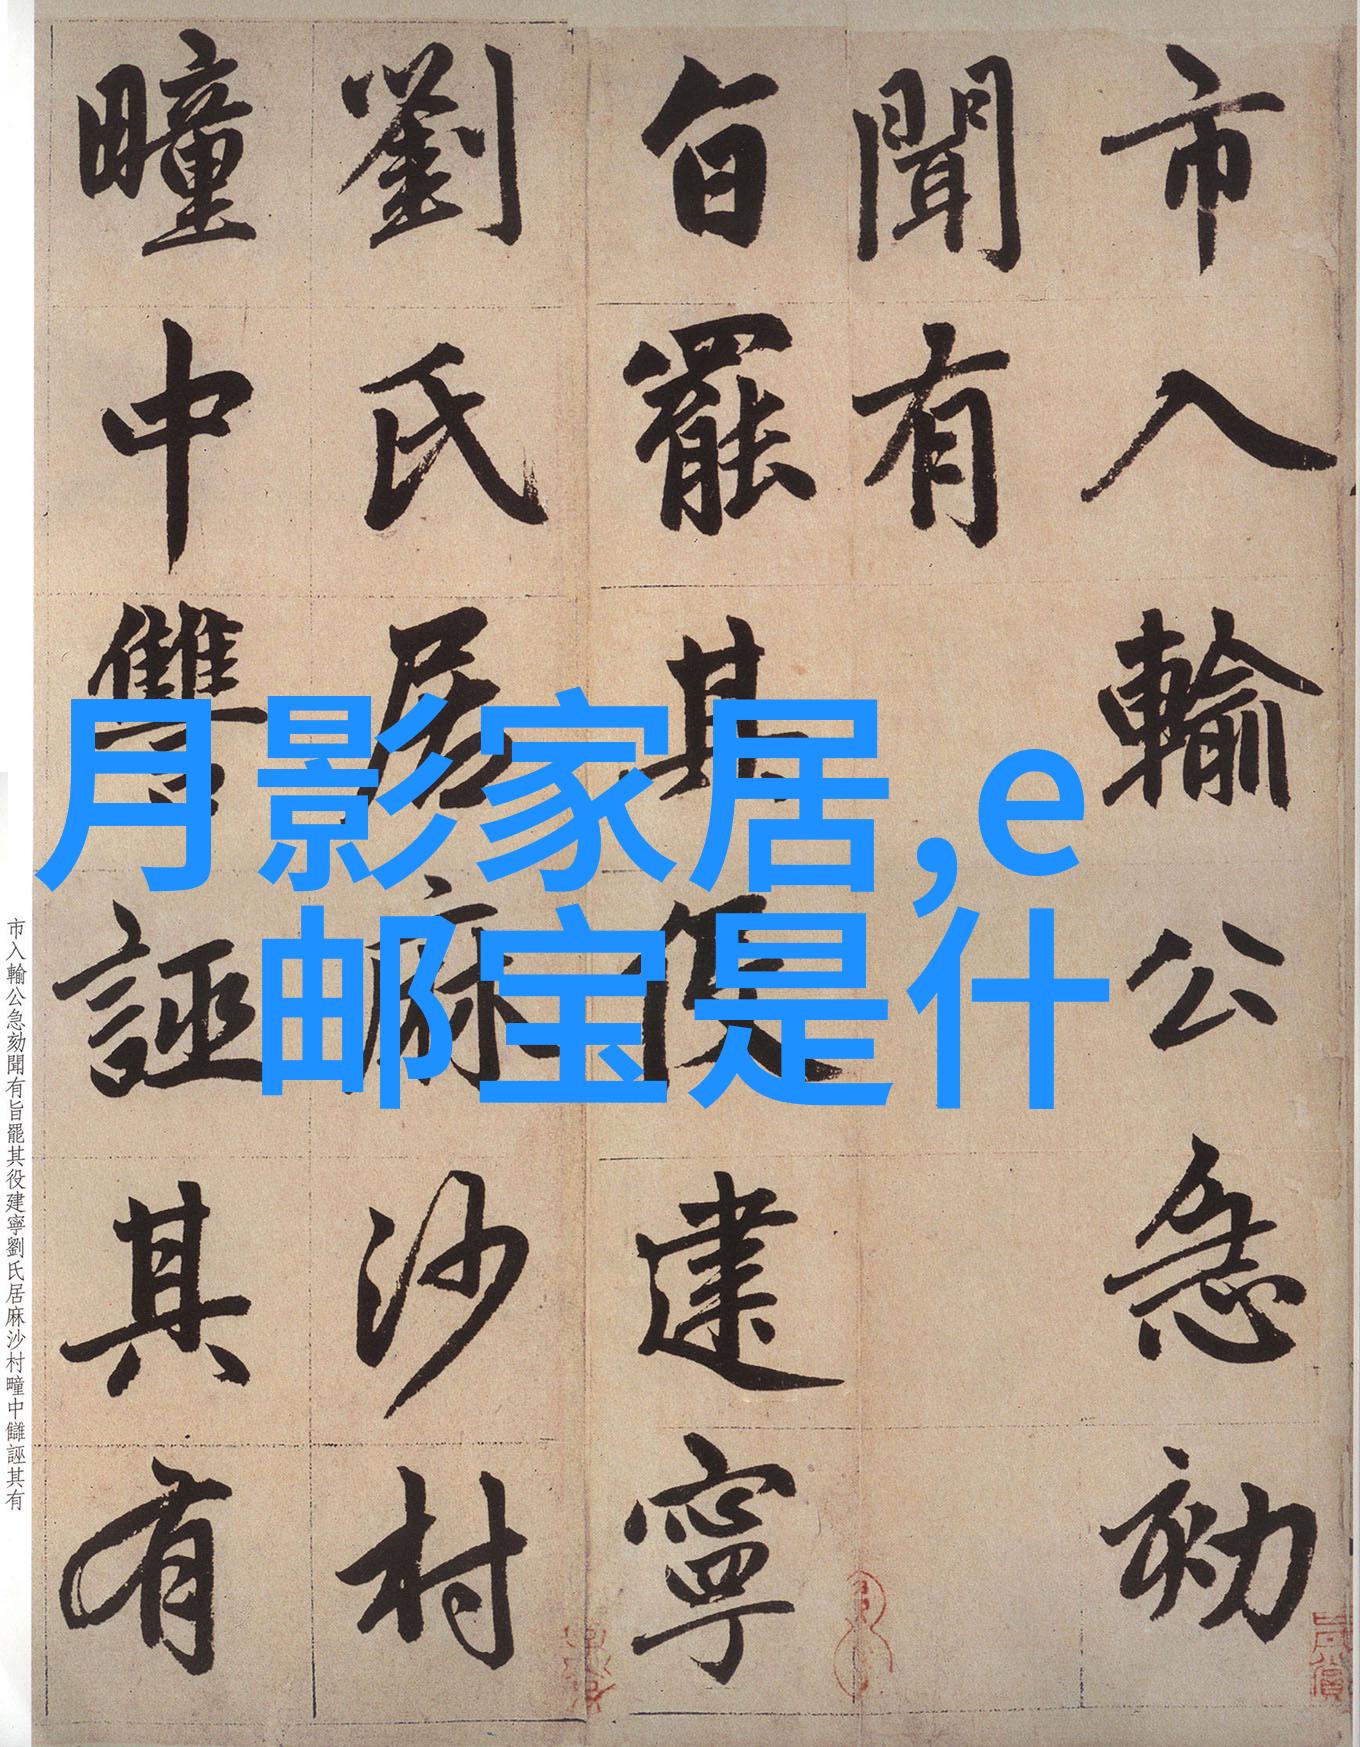 市入輸公急劾
聞有
旨罷其役建寧
劉氏居麻沙村
疃中讐誣其有
月影家居,e
邮宝是什
市入輸公急劾聞有旨罷其役建寧劉氏居麻沙村疃中讎誣其有